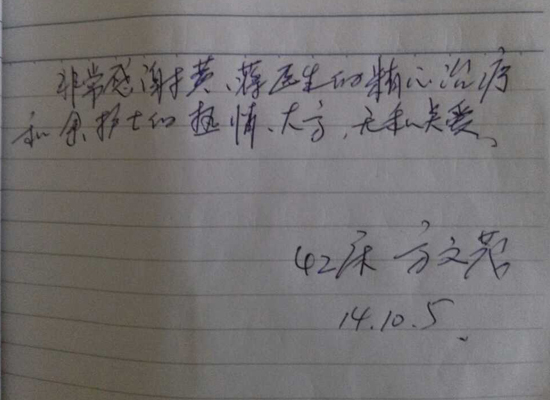 非常感谢黄、蒋医生的精心治疗
和余护士的热情、大方、无私关爱。
42床 方文
14.10.5